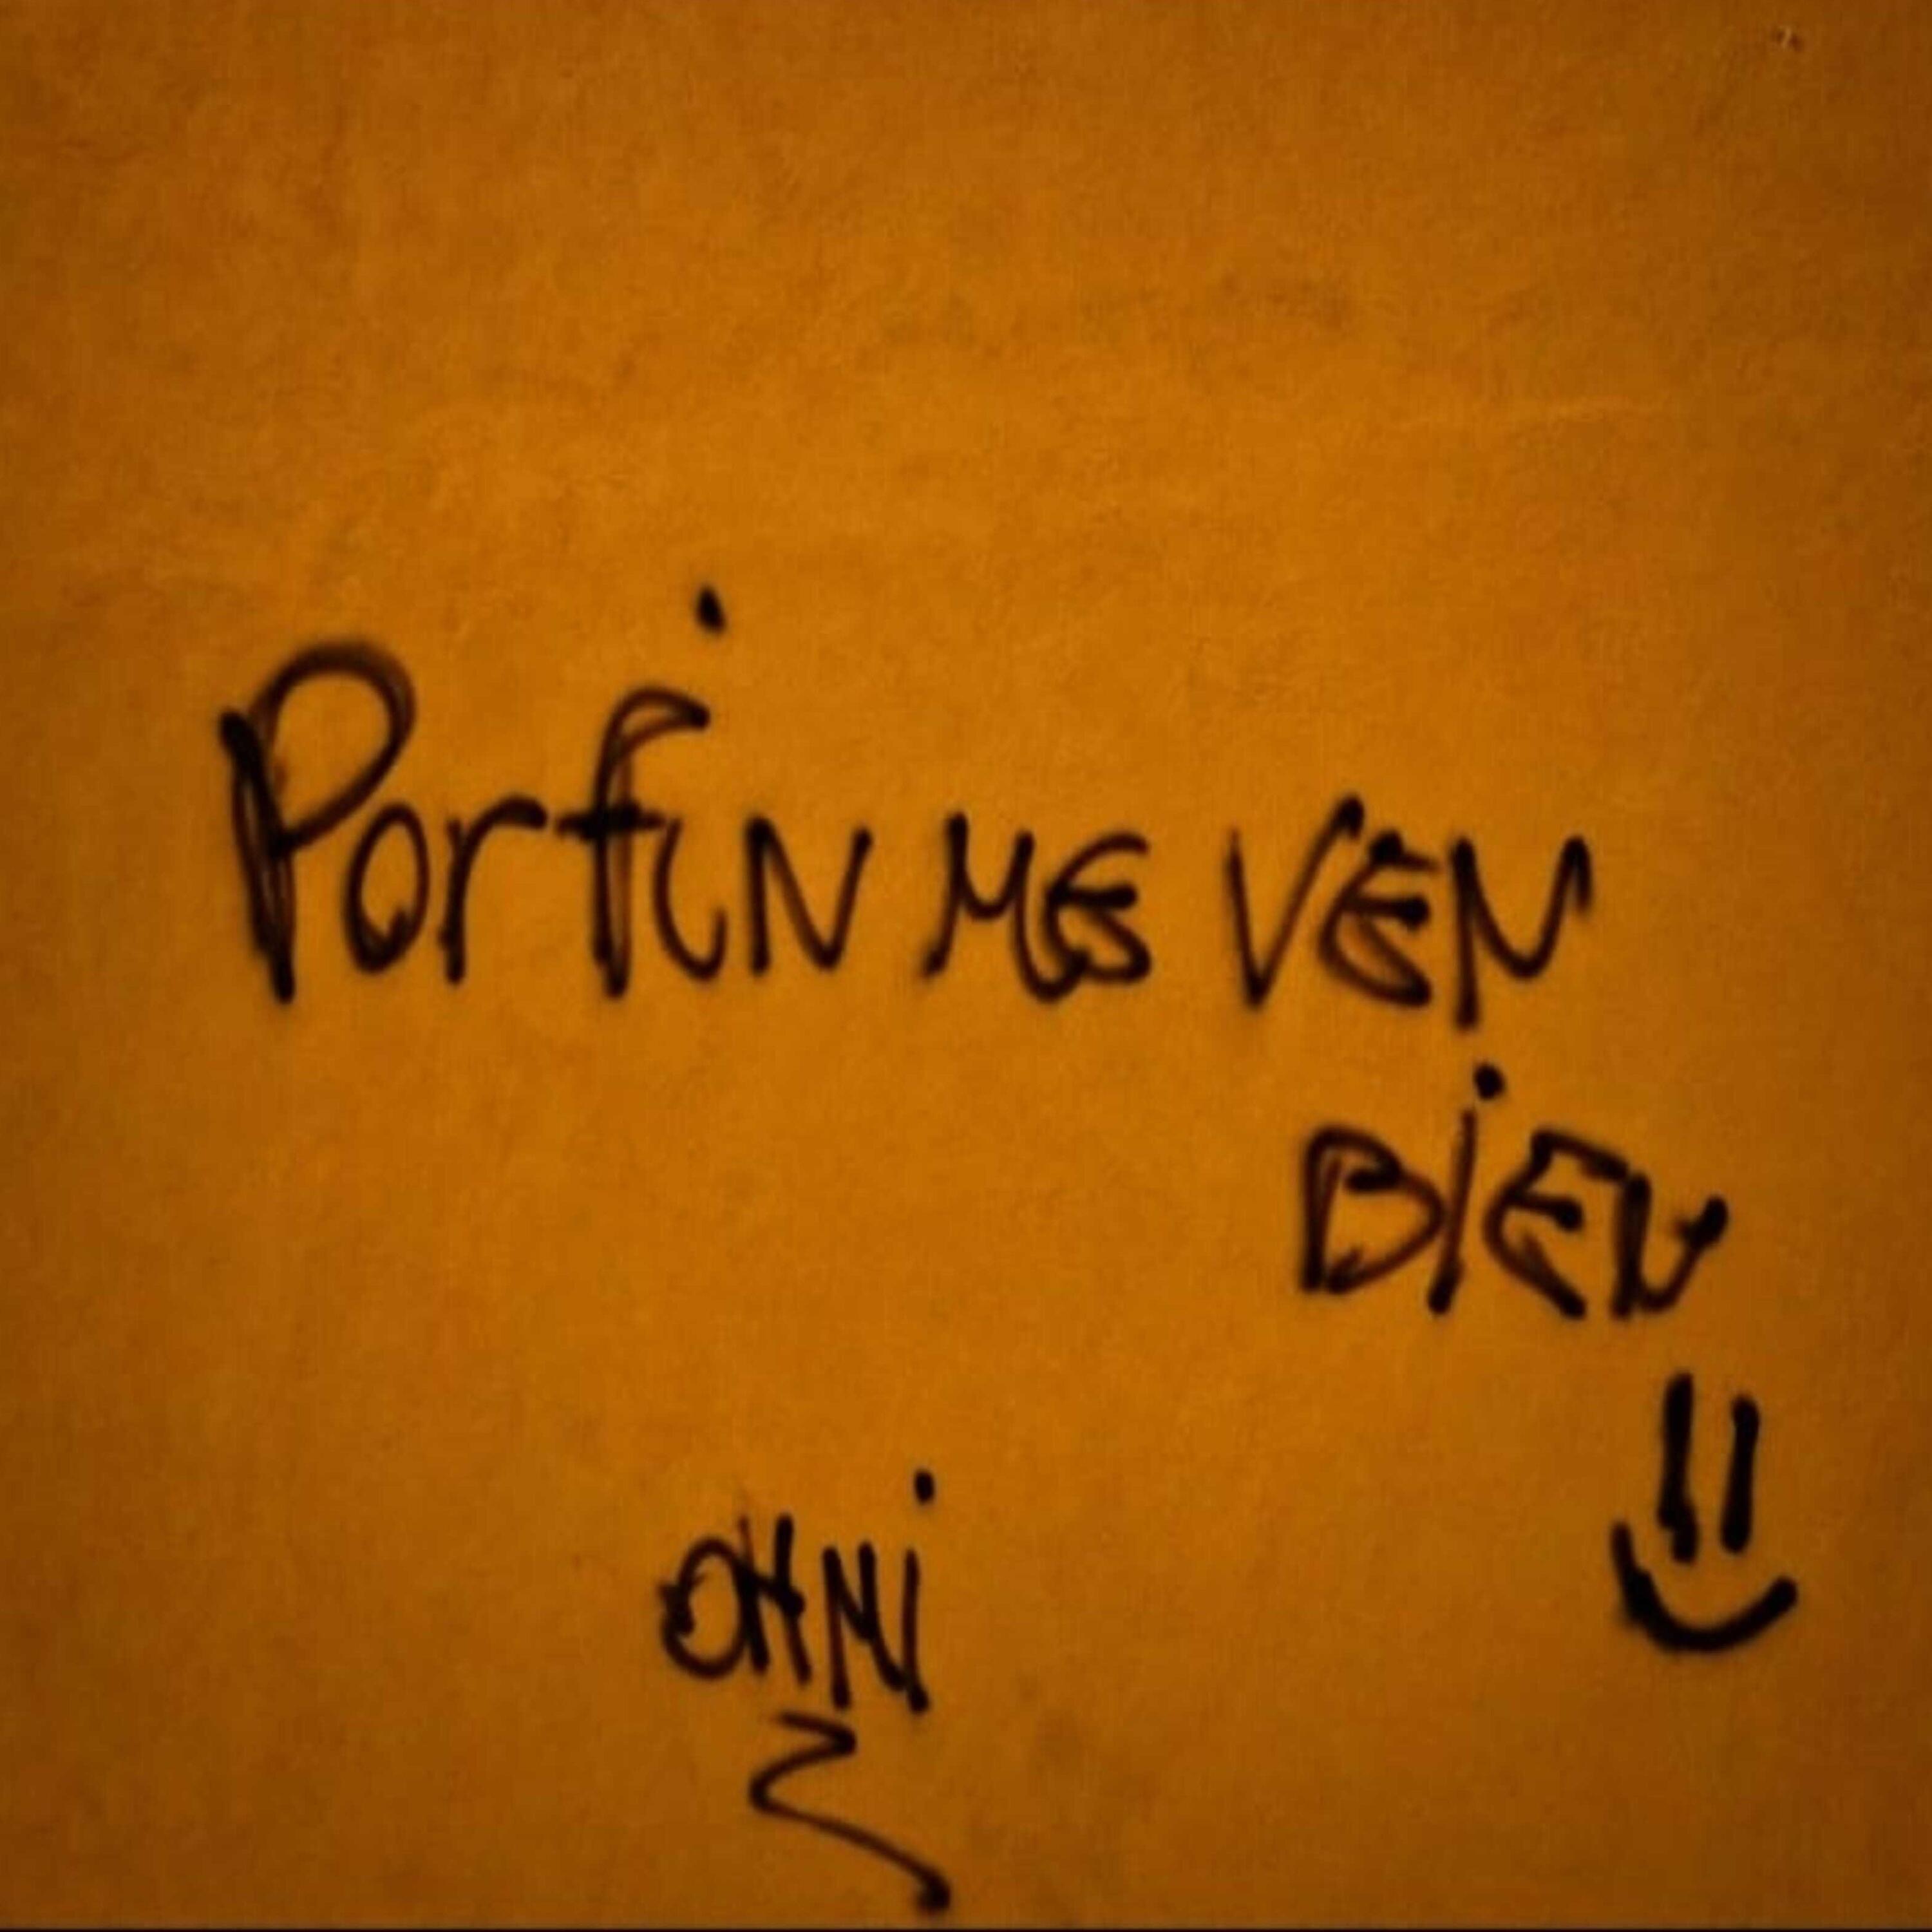 Porfin me ven
bien
OHNi